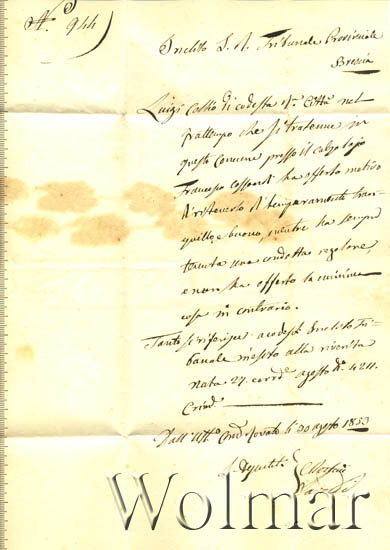 N.° 944
Inclito I. R. Tribunale Provinciale
Brescia
Luigi di codesta R. Città nel
frattempo che si trattenne in
questo Comune presso il calzolajo
Francesco ha offerto motivo
di ritenerlo di temperamento tran-
quillo, e buono, mentre ha sempre
tenuta una condotta regolare,
e non ha offerto la minima
cosa in contrario.
Tanto si riferisce a codesto Inclito Tri-
bunale in esito alla riverita
nota 27. corr.e agosto N.° 4211.
Crim.
Dall' Uff.o Com.l Rovato li 30 agosto 1853
I Deputati
Wolmar